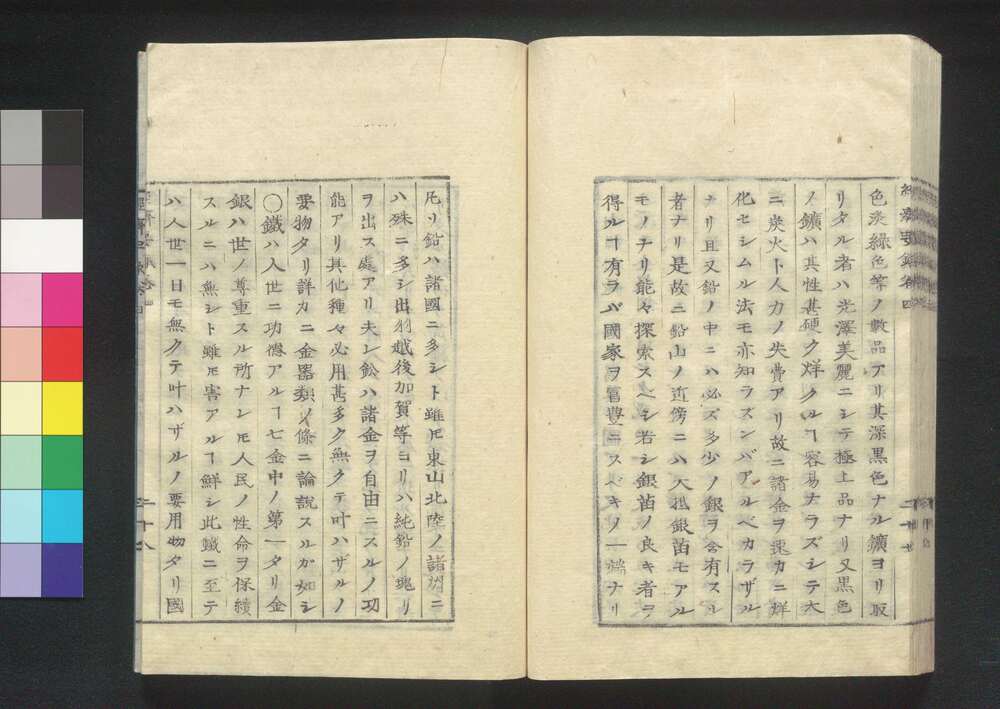 經濟要錄卷四
色淡綠色等ノ數品アリ其深黒色ナル鑛ヨリ取
リタル者ハ光澤美麗ニシテ極上品ナリ又黒色
ノ鑛ハ其性甚硬ク烊クルヿ容易ナラズシテ大
ニ炭火ト人力ノ失費アリ故ニ諸金ヲ速カニ烊
化セシムル法モ亦知ラズンバアルベカラザル
ナリ且又鉛ノ中ニハ必ズ多少ノ銀ヲ含有スル
者ナリ是故ニ鉛山ノ近傍ニハ大抵銀苗モアル
モノナリ能々探索スベシ若シ銀苗ノ良キ者ヲ
得ルヿ有ラバ國家ヲ冨豊ニスベキノ一端ナリ
凡リ鉛ハ諸國ニ多シト雖𪜈東山北陸ノ諸州ニ
ハ殊ニ多シ出羽越後加賀等ヨリハ純鉛ノ塊リ
ヲ出ス處アリ夫レ鉛ハ諸金ヲ自由ニスルノ功
能アリ其他種々必用甚多ク無クテ叶ハザルノ
要物タリ詳カニ金器類ノ條ニ論説スルガ如シ
○鐵ハ人世ニ功德アルヿ七金中ノ第一タリ金
銀ハ世ノ尊重スル所ナレ𪜈人民ノ性命ヲ保續
スルニハ無シト雖𪜈害アルヿ鮮シ此鐵ニ至テ
ハ人世一日モ無クテ叶ハザルノ要用物タリ國
二十八